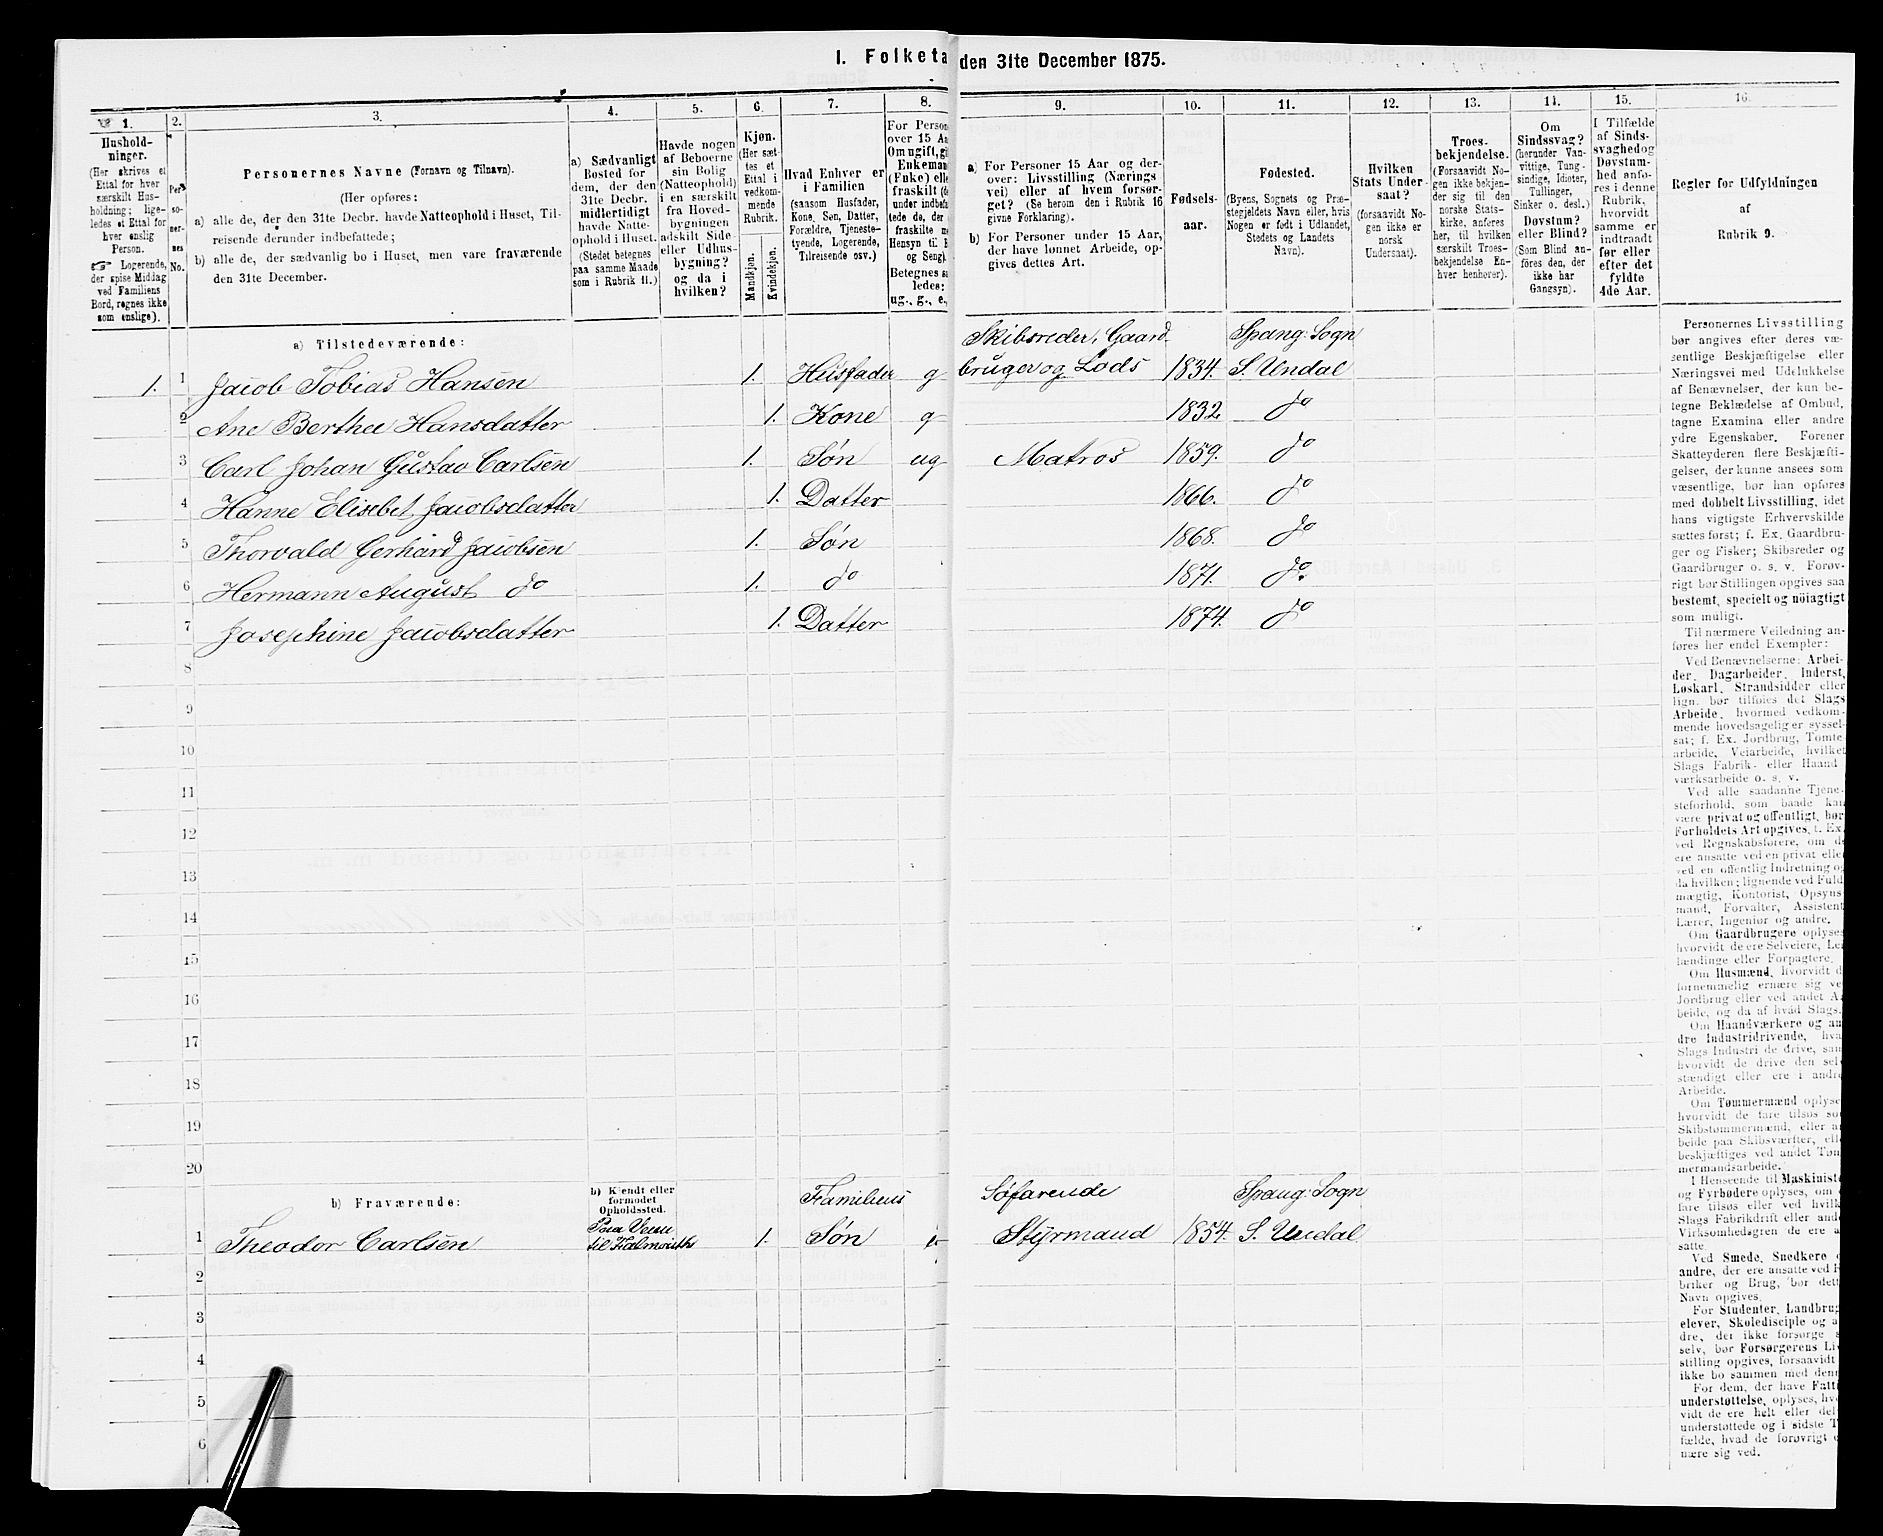 I. Folketa den 31te December 1875.
1. 2. 3. 4. 5. 6. 7. 8. 9. 10. 11. 12. 13. 14. 15. 16.
Hushold-
ninger.
(Her skrives et
Ettal for hver
særskilt Hus-
holdning; lige-
ledes et Ettal for
hver enslig
Person.
☞ Logerende,
der spise Middag
ved Familiens
Bord, regnes ikke
som enslige).
Per-
so-
ner-
nes
No.
Personernes Navne (Fornavn og Tilnavn).
(Her opføres:
a) alle de, der den 31te Decbr. havde Natteophold i Huset, Til-
reisende derunder indbefattede;
b) alle de, der sædvanlig bo i Huset, men vare fraværende
den 31te December.
a) Sædvanligt
Bosted for
dem, der den
31te Decbr.
midlertidigt
havde Natte-
ophold i Huset.
(Stedet betegnes
paa samme Maade
som i Rubrik 11.)
Havde nogen
af Beboerne
sin Bolig
(Natteophold)
i en særskilt
fra Hoved-
bygningen
adskilt Side-
eller Udhus-
bygning?
og da i
hvilken?
Kjøn.
(Her sæt-
tes et
Ettal i
vedkom-
mende
Rubrik.
Mandkjøn.
Kvindekjøn.
Hvad Enhver er
i Familien
(saasom Husfader,
Kone, Søn, Datter,
Forældre, Tjeneste-
tyende, Logerende,
Tilreisende osv.)
For Persone
over 15 Aa
Om ugift, gi
Enkeman
(Enke) elle
fraskilt (de
under indbefat-
tede de, der
fraskilte
Hensyn til B
og Seng).
Betegnes sa
ledes:
ug., g., e.,
a) For Personer 15 Aar og der-
over: Livsstilling (Nærings
vei) eller af hvem forsør-
get? (Se herom den i Rubrik 16
givne Forklaring).
b) For Personer under 15 Aar,
der have lønnet Arbeide, op-
gives dettes Art.
Fødsels-
aar.
Fødested.
(Byens, Sognets og Præ-
stegjeldets Navn eller, hvis
Nogen er født i Udlandet,
Stedets og Landets
Navn).
Hvilken
Stats Under-
saat?
(forsaavidt No-
gen ikke er
norsk
Undersaat).
Troes-
bekjendelse.
(Forsaavidt No-
gen ikke bekjen-
der sig til den
norske Stats-
kirke, anføres
her, til hvilken
særskilt Troes-
bekjendelse En-
hver henhører).
Om
Sindssvag?
(herunder Van-
vittige, Tung-
sindige, Idioter,
Tullinger,
Sinker o. desl.)
Døvstum?
eller Blind?
(Som Blind an-
føres den, der
ikke har
Gangsyn).
I Tilfælde
af Sinds-
svaghed og
Døvstum-
hed anfø-
res i denne
Rubrik,
hvorvidt
samme er
indtraadt
før eller
efter det
fyldte
4de Aar.
Regler for Udfyldningen
af
Rubrik 9.
a) Tilstedeværende:
Skibsreder, Gaard- Spang: Sogn
1. 1 Jacob Tobias Hansen 1. Husfader g bruger og Lods 1834. S. Undal
2 Ane Berthee Hansdatter 1. Kone g 1832 do
3 Carl Johan Gustav Carlsen 1. Søn ug Matros 1859. do
4 Hanne Elisebet Jacobsdatter 1. Datter 1866. do
5 Thorvald Gerhard Jacobsen 1. Søn 1868. do
6 Hermann August do 1. do 1871. do
7 Josephine Jacobsdatter 1. Datter 1874. do
8
9
10
11
12
13
14
15
16
17
18
19
20
b) Fraværende:
b) Kjendt eller
formodet
Opholdssted.
Familiens Søfarende Spang: Sogn
1 Theodor Carlsen til Falmouth 1. Søn Styrmand 1854. S. Undal
2
3
4
5
6
Personernes Livsstilling
bør angives efter deres væ-
sentlige Beskjæftigelse eller
Næringsvei med Udelukkelse
af Benævnelser, der kun be-
tegne Beklædelse af Ombud,
tagne Examina eller andre
ydre Egenskaber. Forener
Skatteyderen flere Beskjæfti-
gelser, der kunne ansees som
væsentlige, bør han opføres
med dobbelt Livsstilling, idet
hans vigtigste Erhvervskilde
sættes først; f. Ex. Gaardbru-
ger og Fisker; Skibsreder og
Gaardbruger o. s. v. Forøv-
rigt bør Stillingen opgives saa
bestemt, specielt og nöiagtigt
som muligt.
Til nærmere Veiledning an-
føres her endel Exempler:
Ved Benævnelserne: Arbei-
der, Dagarbeider, Inderst,
Løskarl, Strandsidder eller
lign. bør tilføies det Slags
Arbeide, hvormed vedkom-
mende hovedsagelig er syssel-
sat; f. Ex. Jordbrug, Tomte-
arbeide, Veiarbeide, hvilket
Slags Fabrik- eller Haand-
værksarbeide o. s. v.
Ved alle saadanne Tjene-
steforhold, som baade kan
være privat og offentligt, bør
Forholdets Art opgives, f. Ex.
ved Regnskabsførere, om d
ere ansatte ved en privat elle
ved en offentlig Indretning og
da hvilken; lignende ved Fuld-
mægtig, Kontorist, Opsyns-
mand, Forvalter, Assistent
Lærer, Ingeniør og andre.
Om Gaardbrugere oplyse
hvorvidt de ere Selveiere, Lei-
lændinge eller Forpagtere.
Om Husmænd, hvorvidt d
fornemmelig ernære sig ve
Jordbrug eller ved andet A
beide, og da af hvad Slags.
Om Haandværkere og an
dre Industridrivende, hva
Slags Industri de drive, sam
hvorvidt de drive den sel
stændigt eller ere i andre
Arbeide.
Om Tømmermænd oplyse
hvorvidt de fare tilsøs so
Skibstømmermænd, eller a
beide paa Skibsværfter, ell
beskjæftiges ved andet Tøm
mermandsarbeide.
I Henseende til Maskiniste
og Fyrbødere oplyses, om d
fare tilsøs eller ved hvilk
Slags Fabrikdrift eller ande
Virksomhedsgren de ere a
satte.
Ved Smede, Snedkere o
andre, der ere ansatte ved F
briker og Brug, bør dett
Navn opgives.
For Studenter, Landbrug
elever, Skoledisciple og a
dre, der ikke forsørge s
selv, bør Forsørgerens Liv
stilling opgives, forsaavidt
ikke bo sammen med denn
For dem, der have Fatti
understøttelse, oplyses, hvo
vidt de ere helt eller del
understøttede og i sidste T
fælde, hvad de forøvrigt e
nære sig ved.